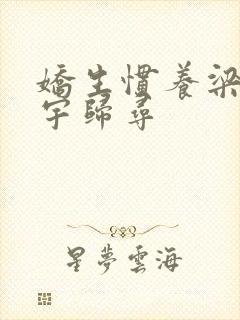 嬌生慣養梁
宇歸尋
星夢雲海